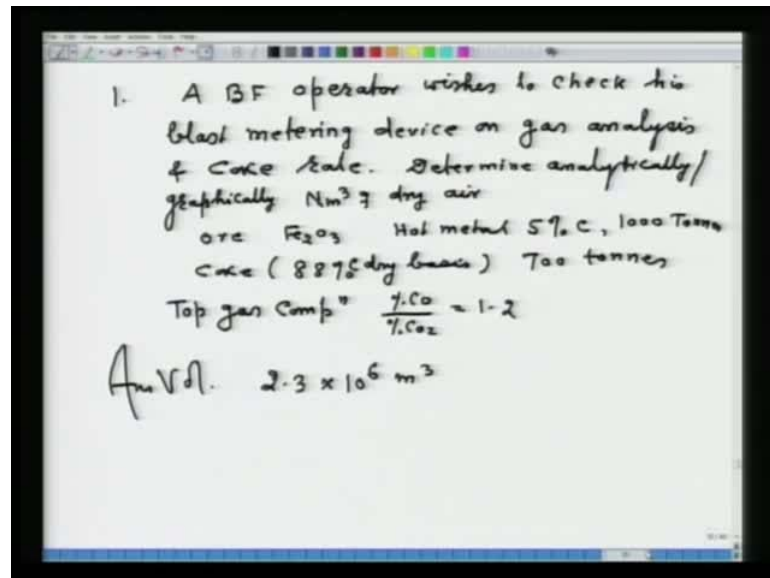 1. A BF operator wishes to check his
blast metering device on gas analysis
& coke rate. Determine analytically/
graphically Nm³ of dry air
ore Fe₂O₃ Hot metal 5% C, 1000 Tonne
Coke (88% C dry basis) 700 tonnes
Top gas Compⁿ %CO/%CO₂ = 1.2
Ans Vol. 2.3 × 10⁶ m³